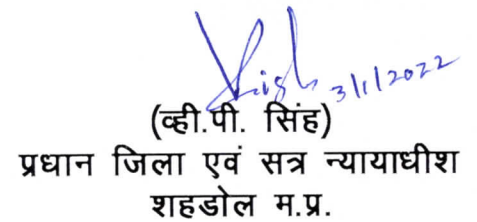 3/1/2022
(व्ही.पी. सिंह)
प्रधान जिला एवं सत्र न्यायाधीश
शहडोल म.प्र.